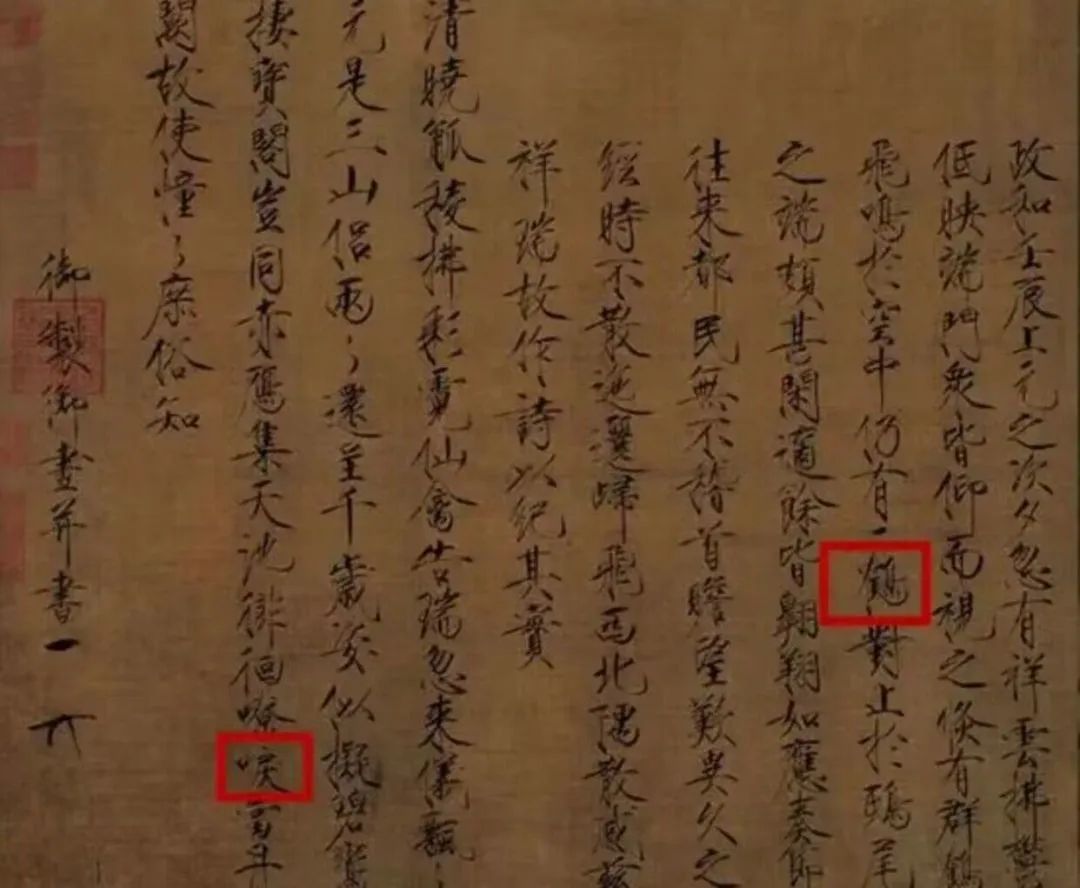 政和壬辰上元之次夕忽有祥雲拂鬱
低映端門衆皆仰而視之倏有群鶴
飛鳴於空中仍有二鶴對止於鴟尾
之端頗甚閑適餘皆翱翔如應奏節
往来都民無不稽首瞻望歎異久之
經時不散迤邐歸飛西北隅散感茲
祥瑞故作詩以紀其實
清曉觚稜拂彩霓仙禽告瑞忽来儀飄々
元是三山侶兩々還呈千歲姿似擬碧鸞
棲寶閣豈同赤鴈集天池徘徊嘹唳當丹
闕故使憧々庶俗知
御製御畫并書